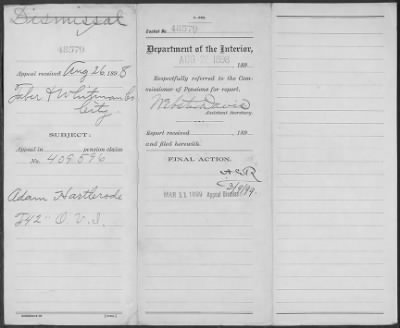 Dismissal
48579
Appeal received Aug 26, 1898
Taber & Whitman Co
City.
SUBJECT:
Appeal in pension claim
No. 409,596
Adam Hartlerode
I 42" O. V. I.
Docket No. 48579
Department of the Interior,
AUG 1898, 189
Respectfully referred to the Com-
missioner of Pensions for report.
Webster Davis
Assistant Secretary.
Report received 189
and filed herewith.
FINAL ACTION.
3/9/99.
MAR 11 1899 Appeal